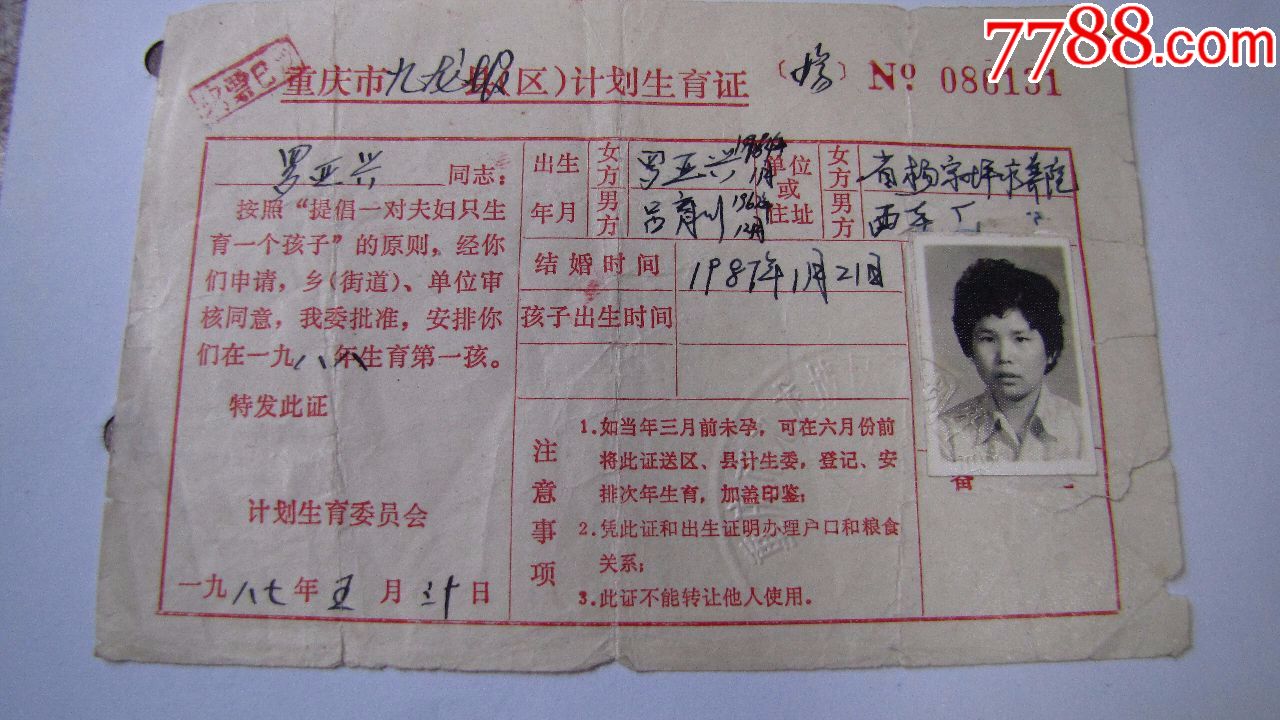 7788.com
重庆市九龙坡(区)计划生育证
№ 086131
罗亚兴 同志:
按照“提倡一对夫妇只生
育一个孩子”的原则,经你
们申请,乡(街道)、单位审
核同意,我委批准,安排你
们在一九八八年生育第一孩。
特发此证
计划生育委员会
一九八七年五月三十日
出生年月
女方 罗亚兴
男方 吕育川
单位或住址
女方
男方
结婚时间 1987年1月21日
孩子出生时间
注意事项
1.如当年三月前未孕,可在六月份前
将此证送区、县计生委,登记、安
排次年生育,加盖印鉴;
2.凭此证和出生证明办理户口和粮食
关系;
3.此证不能转让他人使用。